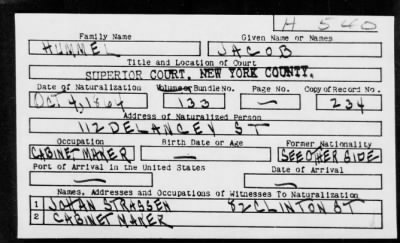 H 540
Family Name Given Name or Names
HUMMEL JACOB
Title and Location of Court
SUPERIOR COURT, NEW YORK COUNTY.
Date of Naturalization Volume or Bundle No. Page No. Copy of Record No.
OCT 4, 1864 133 — 234
Address of Naturalized Person
112 DELANCEY ST
Occupation Birth Date or Age Former Nationality
CABINET MAKER — SEE OTHER SIDE
Port of Arrival in the United States Date of Arrival
— —
Names, Addresses and Occupations of Witnesses To Naturalization
1 JOHAN STRASSEN 82 CLINTON ST
2 CABINET MAKER